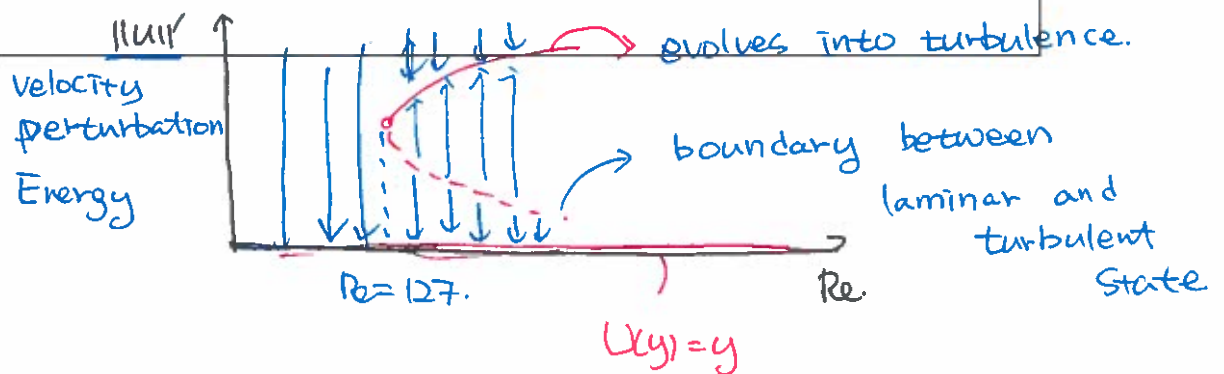 velocity
perturbation
Energy
evolves into turbulence.
boundary between
laminar and
turbulent
state
Re=127.
Re.
U(y)=y